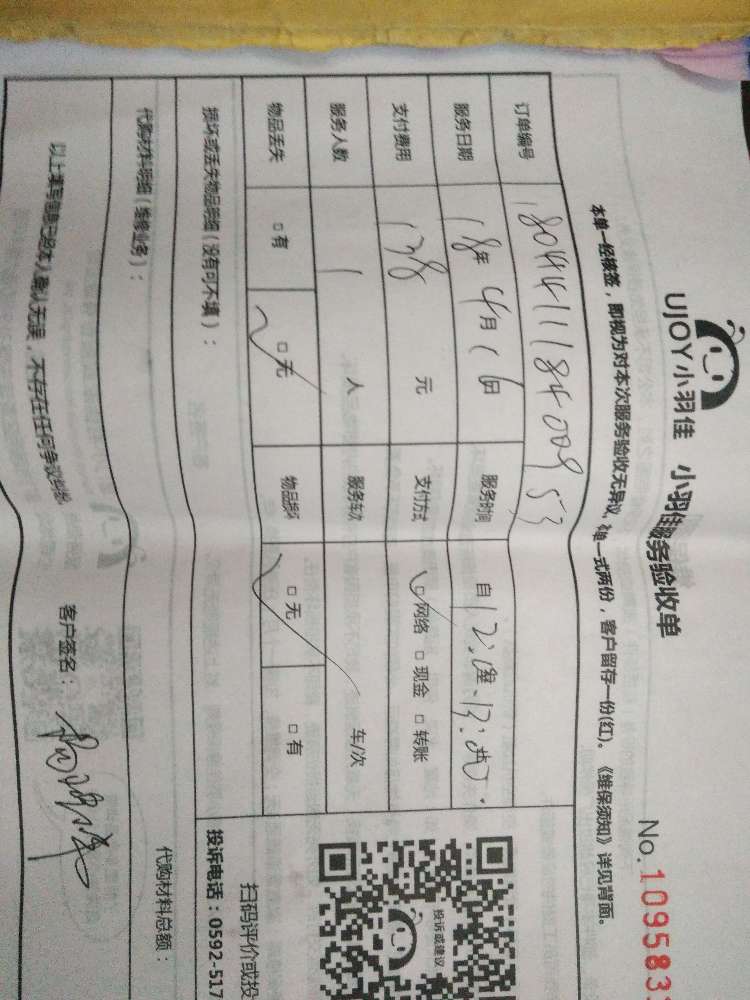 UJOY小羽佳 小羽佳服务验收单
No.109583
本单一经核签，即视为对本次服务验收无异议，单一式两份，客户留存一份(红)。《维保须知》详见背面。
订单编号
服务日期 18年 4月 16日 服务时间 自
支付费用 138 元 支付方式 □网络 □现金 □转账
服务人数 1 人 服务车次 车/次
物品丢失 □有 □无 物品损坏 □无 □有
损坏或丢失物品明细（没有可不填）：
代购材料明细（维修业务）：
代购材料总额：
投诉或建议
扫码评价或投
投诉电话：0592-517
以上填写信息已经本人确认无误，不存在任何争议纠纷
客户签名：